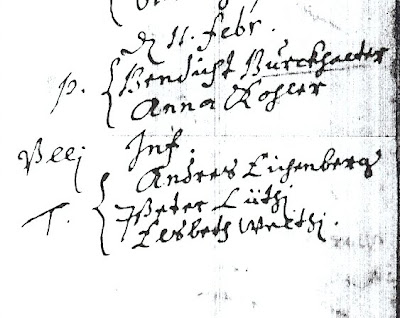 d 11. febr.
p. Bendicht Burckhalter
Anna Kohler
Vllj Inf.
Andres Eichenberg
T. Peter Lüthj
Elsbeth Welthj.